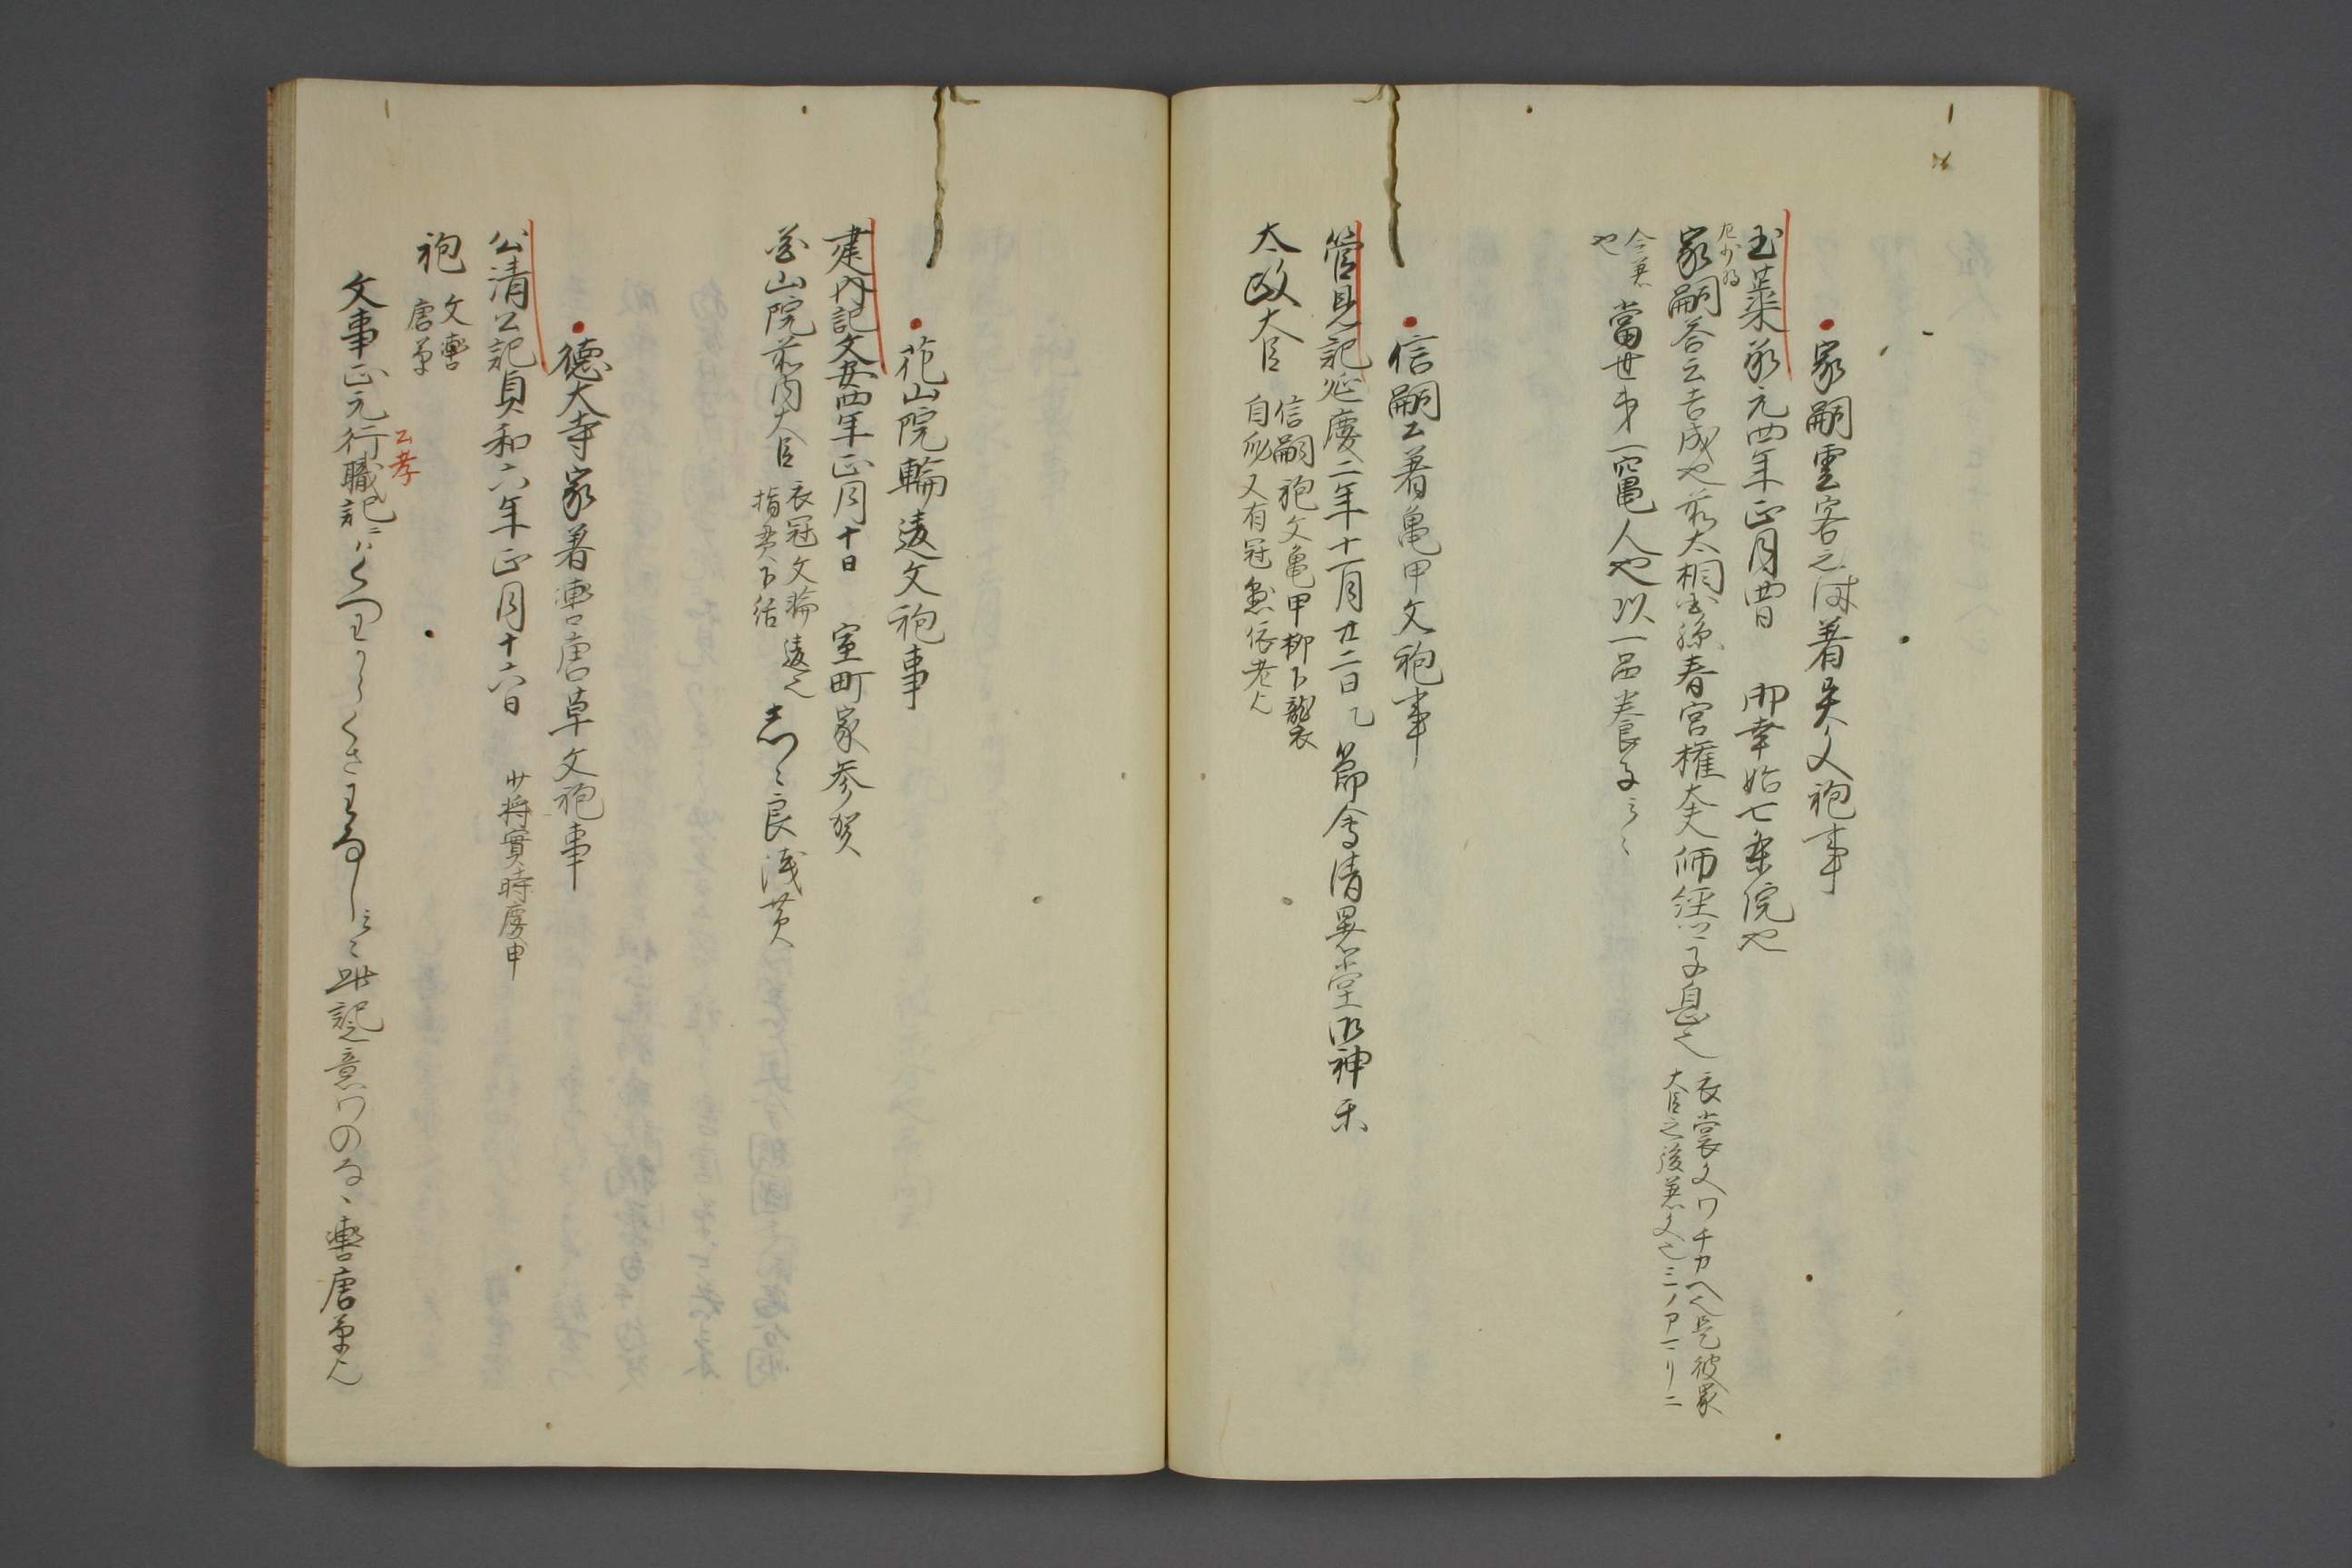 家嗣雲客之時着異文袍事
玉蘂承元四年正月四日 御幸始七条院也
左少将
家嗣答云吉成也前太相国孫春宮権大夫師経卿子息也
衣裳文ワチカヘ也是彼家
大臣之後着文也三ノアリ二
今着
也
當世第一寵人也以一品養子云々
信嗣公着亀甲文袍事
管見記延慶二年十一月廿二日乙 節會清暑堂御神楽
太政大臣
信嗣袍文亀甲柳下襲
自於又有冠懸依老也
花山院輪違文袍事
建内記文安四年正月十日 室町家参賀
花山院前内大臣
衣冠文輪違也
指貫下結
志々良浅黄
徳大寺家着轡唐草文袍事
公清公記貞和六年正月十六日 少将實時慶申
袍
文轡
唐草
公孝
文事正元行職記にくつわからくさまるし云々此記之意ワのな、轡唐草也